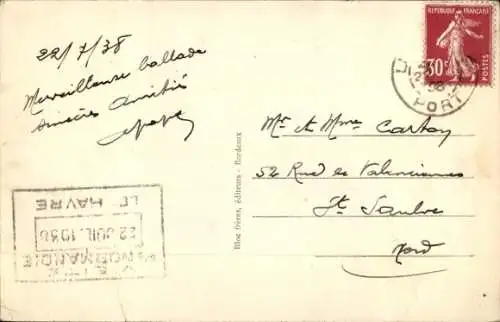 22/7/38
Merveilleuse ballade
sincères Amitiés
REPUBLIQUE FRANÇAISE
30c
POSTES
PORT
Mr et Mme Carton
52 Rue de Valenciennes
St Saulve
Nord
Bloc frères, éditeurs - Bordeaux
NORMANDIE
22 JUIL 1938
LE HAVRE